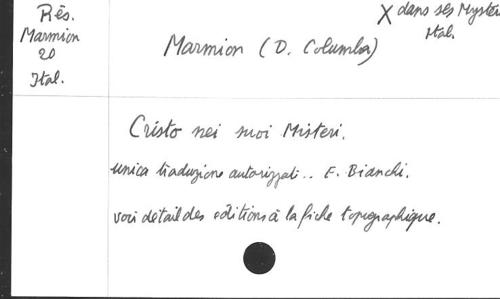 Rés.
Marmion
20
Ital.
X dans ses Mystè
Ital.
Marmion (D. Columba)
Cristo nei suoi Misteri.
unica traduzione autorizzati.. E. Bianchi.
voir détail des éditions à la fiche topographique.